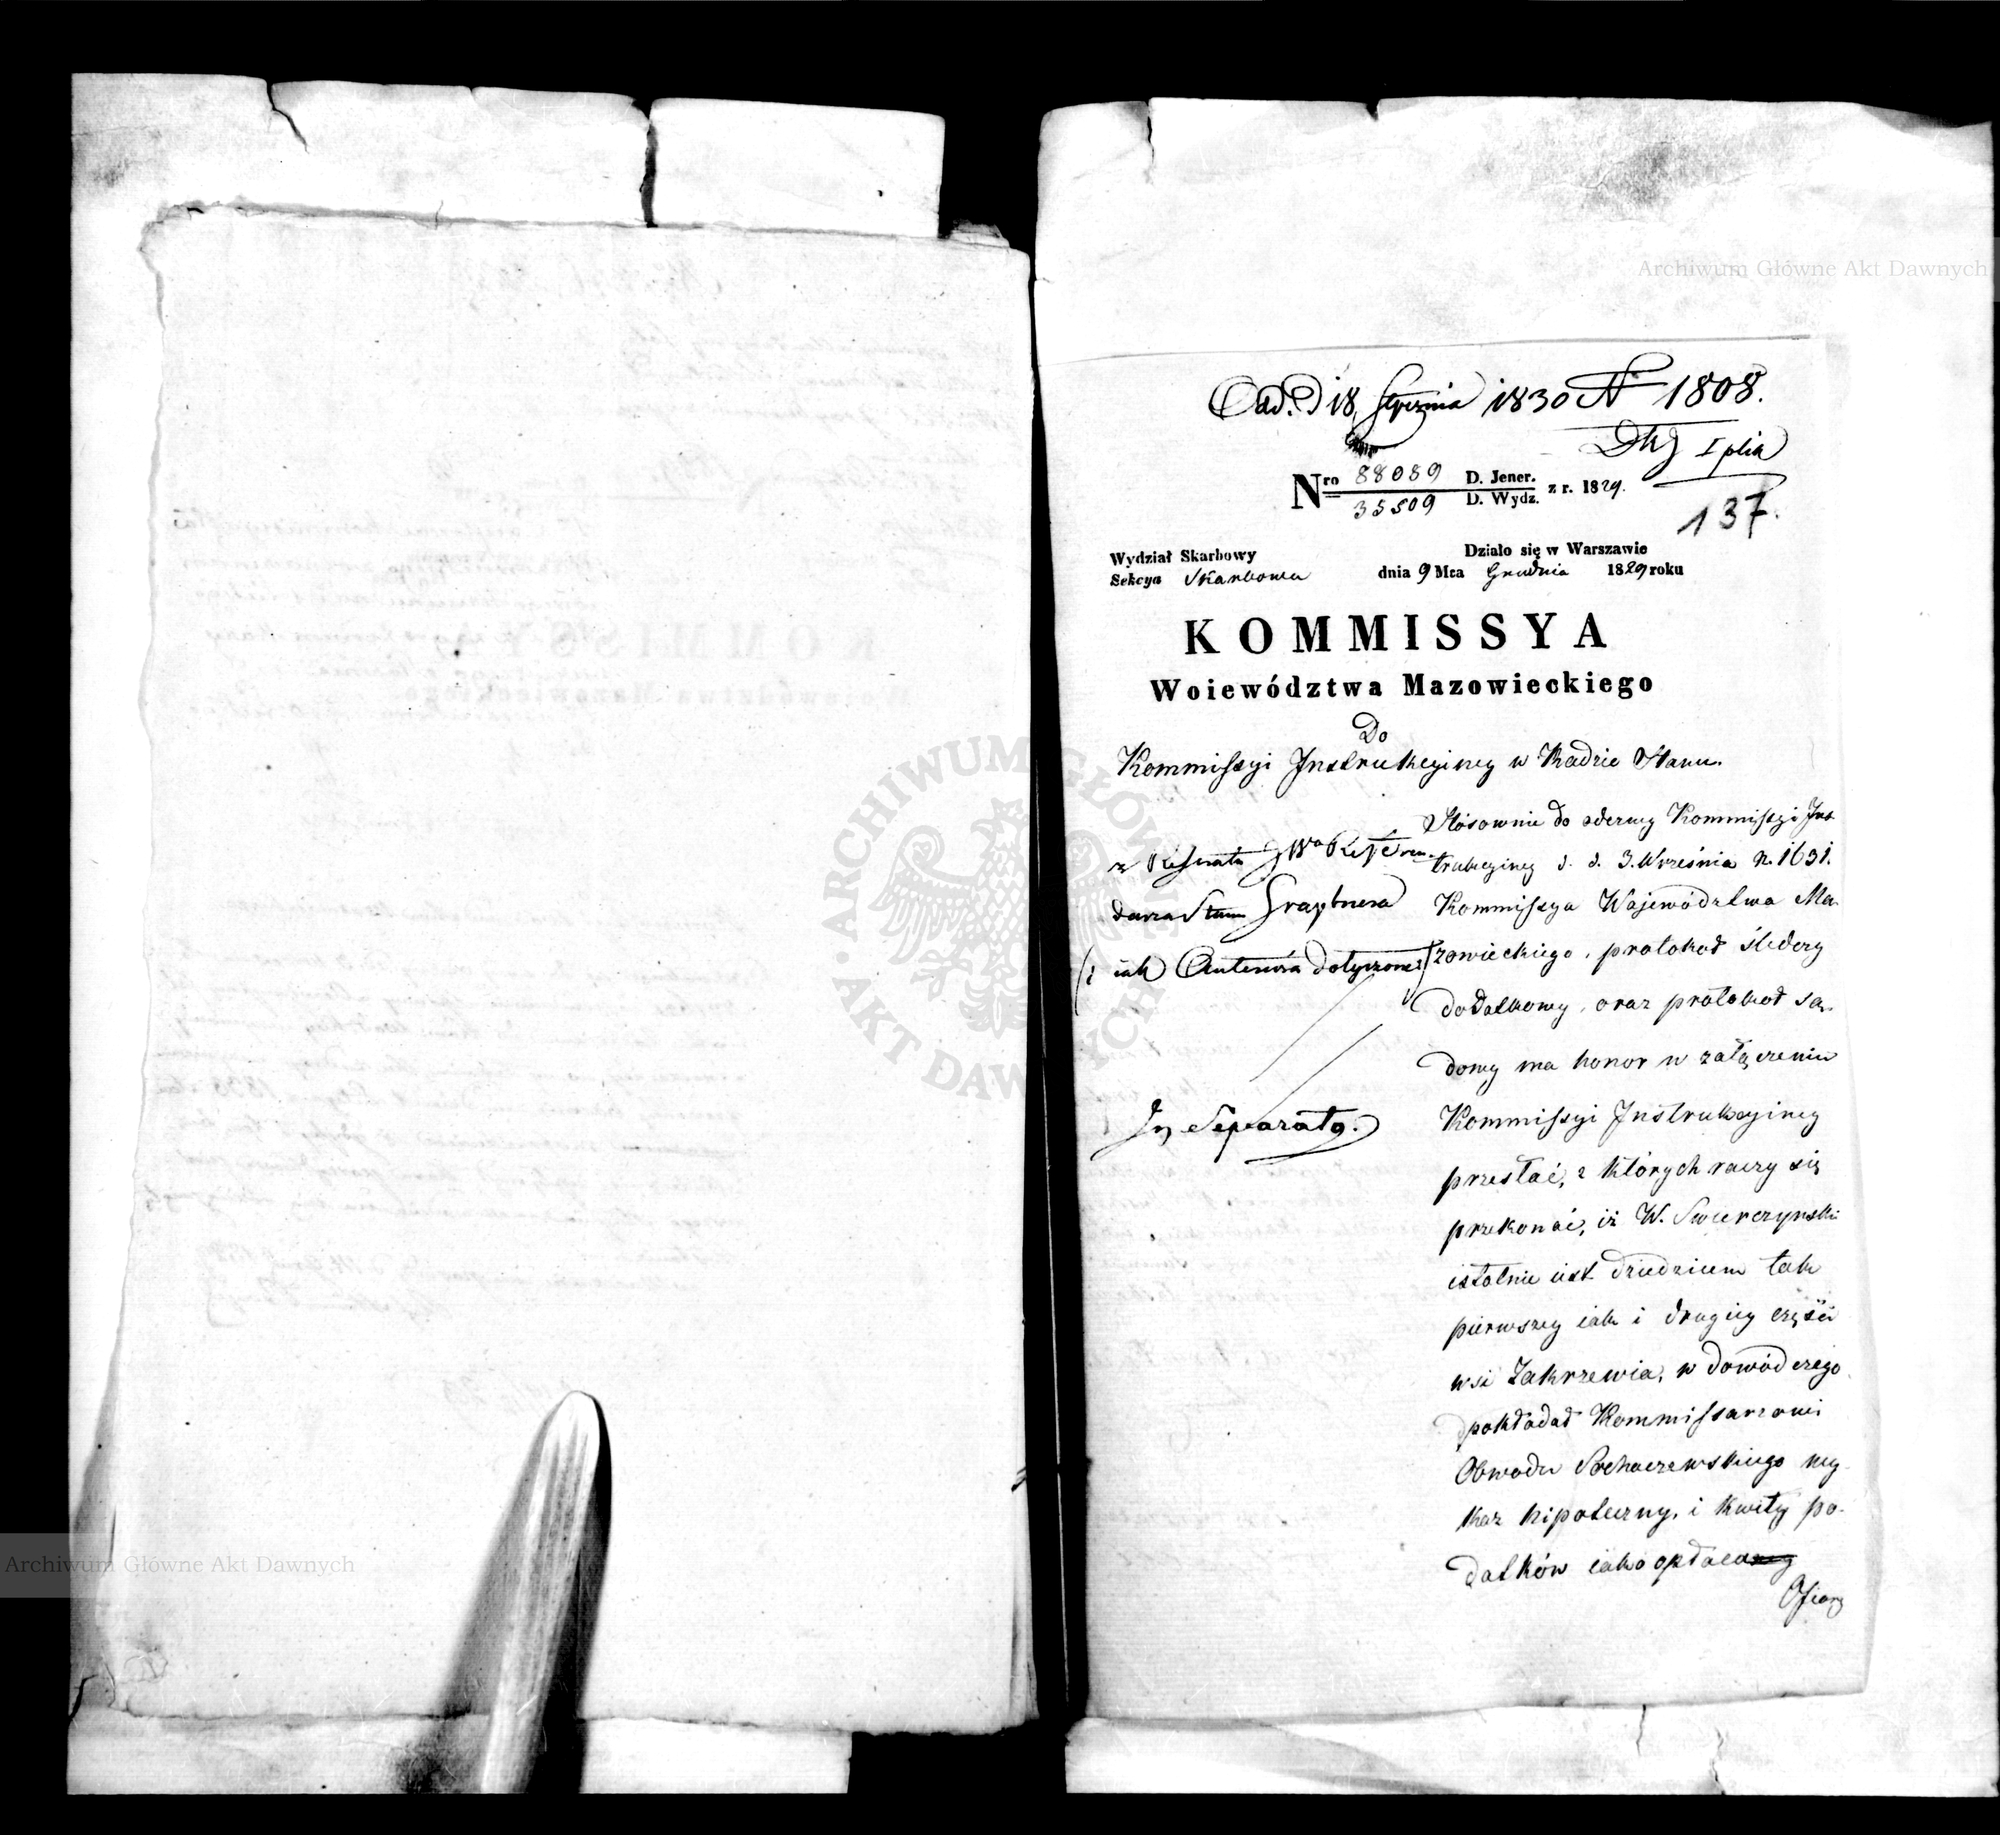 Odd. D 18 Stycznia 1830 N 1808.
I plik
137.
Nro 88089 D. Jener.
35509 D. Wydz. z r. 1829.
Wydział Skarbowy
Sekcya Skarbowa
Działo się w Warszawie
dnia 9 Mca Grudnia 1829 roku
KOMMISSYA
Woiewództwa Mazowieckiego
Do
Kommissyi Instrukcyiney w Radzie Stanu.
z Referatu JWo Referen-
darza Stanu
i iak dotyczone
In Separato.
Stósownie do odezwy Kommissyi Ins-
trukcyiney d. d. 3. Września N. 1631.
Kommissya Wojewódrtwa Ma-
zowieckiego, protokoł śledczy
dodatkowy, oraz protokoł są-
dowy ma honor w załączeniu
Kommissyi Instrukcyiney
przesłać, z których raczy się
przekonać, iż W. Swierczyński
istotnie iest dziedzicem tak
pierwszey iak i drugiey części
wsi Zakrzewia, w dowód czego
pokładał Kommissarzowi
Obwodu Sochaczewskiego wy-
kaz hipoteczny, i kwity po-
datków iako opłaca
Ofiary
ARCHIWUM GŁÓWNE AKT DAWNYCH
Archiwum Główne Akt Dawnych
Archiwum Główne Akt Dawnych